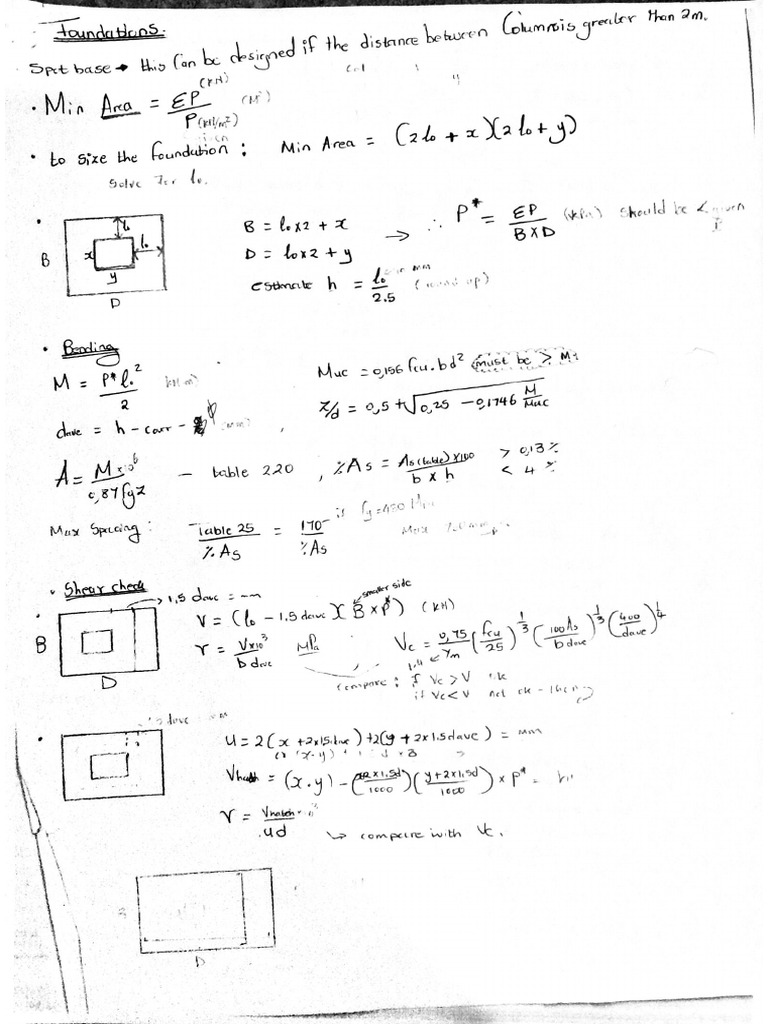 Foundations:
Spot base → this Can be designed if the distance between Columns is greater than 2m.
• Min Area = ΣP (kN) / P (kN/m²) (m²)
• to size the foundation: Min Area = (2lo + x)(2lo + y)
Solve for lo.
B x y lo lo D
B = lo x 2 + x
D = lo x 2 + y
→ ∴ P* = ΣP / B x D (kPa) should be < given P
estimate h = lo / 2.5 (round up)
• Bending
M = P* lo² / 2
Muc = 0,156 fcu. bd² (must be > M)
dave = h - cover - φ (mm),
z/d = 0,5 + √(0,25 - 0,1746 M/Muc)
A = M x10⁶ / 0,87 fy z - table 220, %As = As (table) x100 / b x h > 0,13 % < 4 %
Max Spacing: Table 25 / % As = 170 / % As if fy = 450 MPa
• Shear check
→ 1,5 dave = mm
B D
V = (lo - 1,5 dave)(B x P*) (kN)
smaller side
v = V x10³ / b dave MPa
Vc = 0,75 / γm (fcu / 25)^1/3 (100 As / b dave)^1/3 (400 / dave)^1/4
1.4
compare: if Vc > V ok
if Vc < V not ok
• 1,5 dave = mm
u = 2(x + 2x1.5dave) + 2(y + 2x1.5dave) = mm
Vhatch = (x.y) - (x+2x1,5d / 1000)(y+2x1,5d / 1000) x P* =
v = Vhatch / ud
↳ compare with Vc.
D